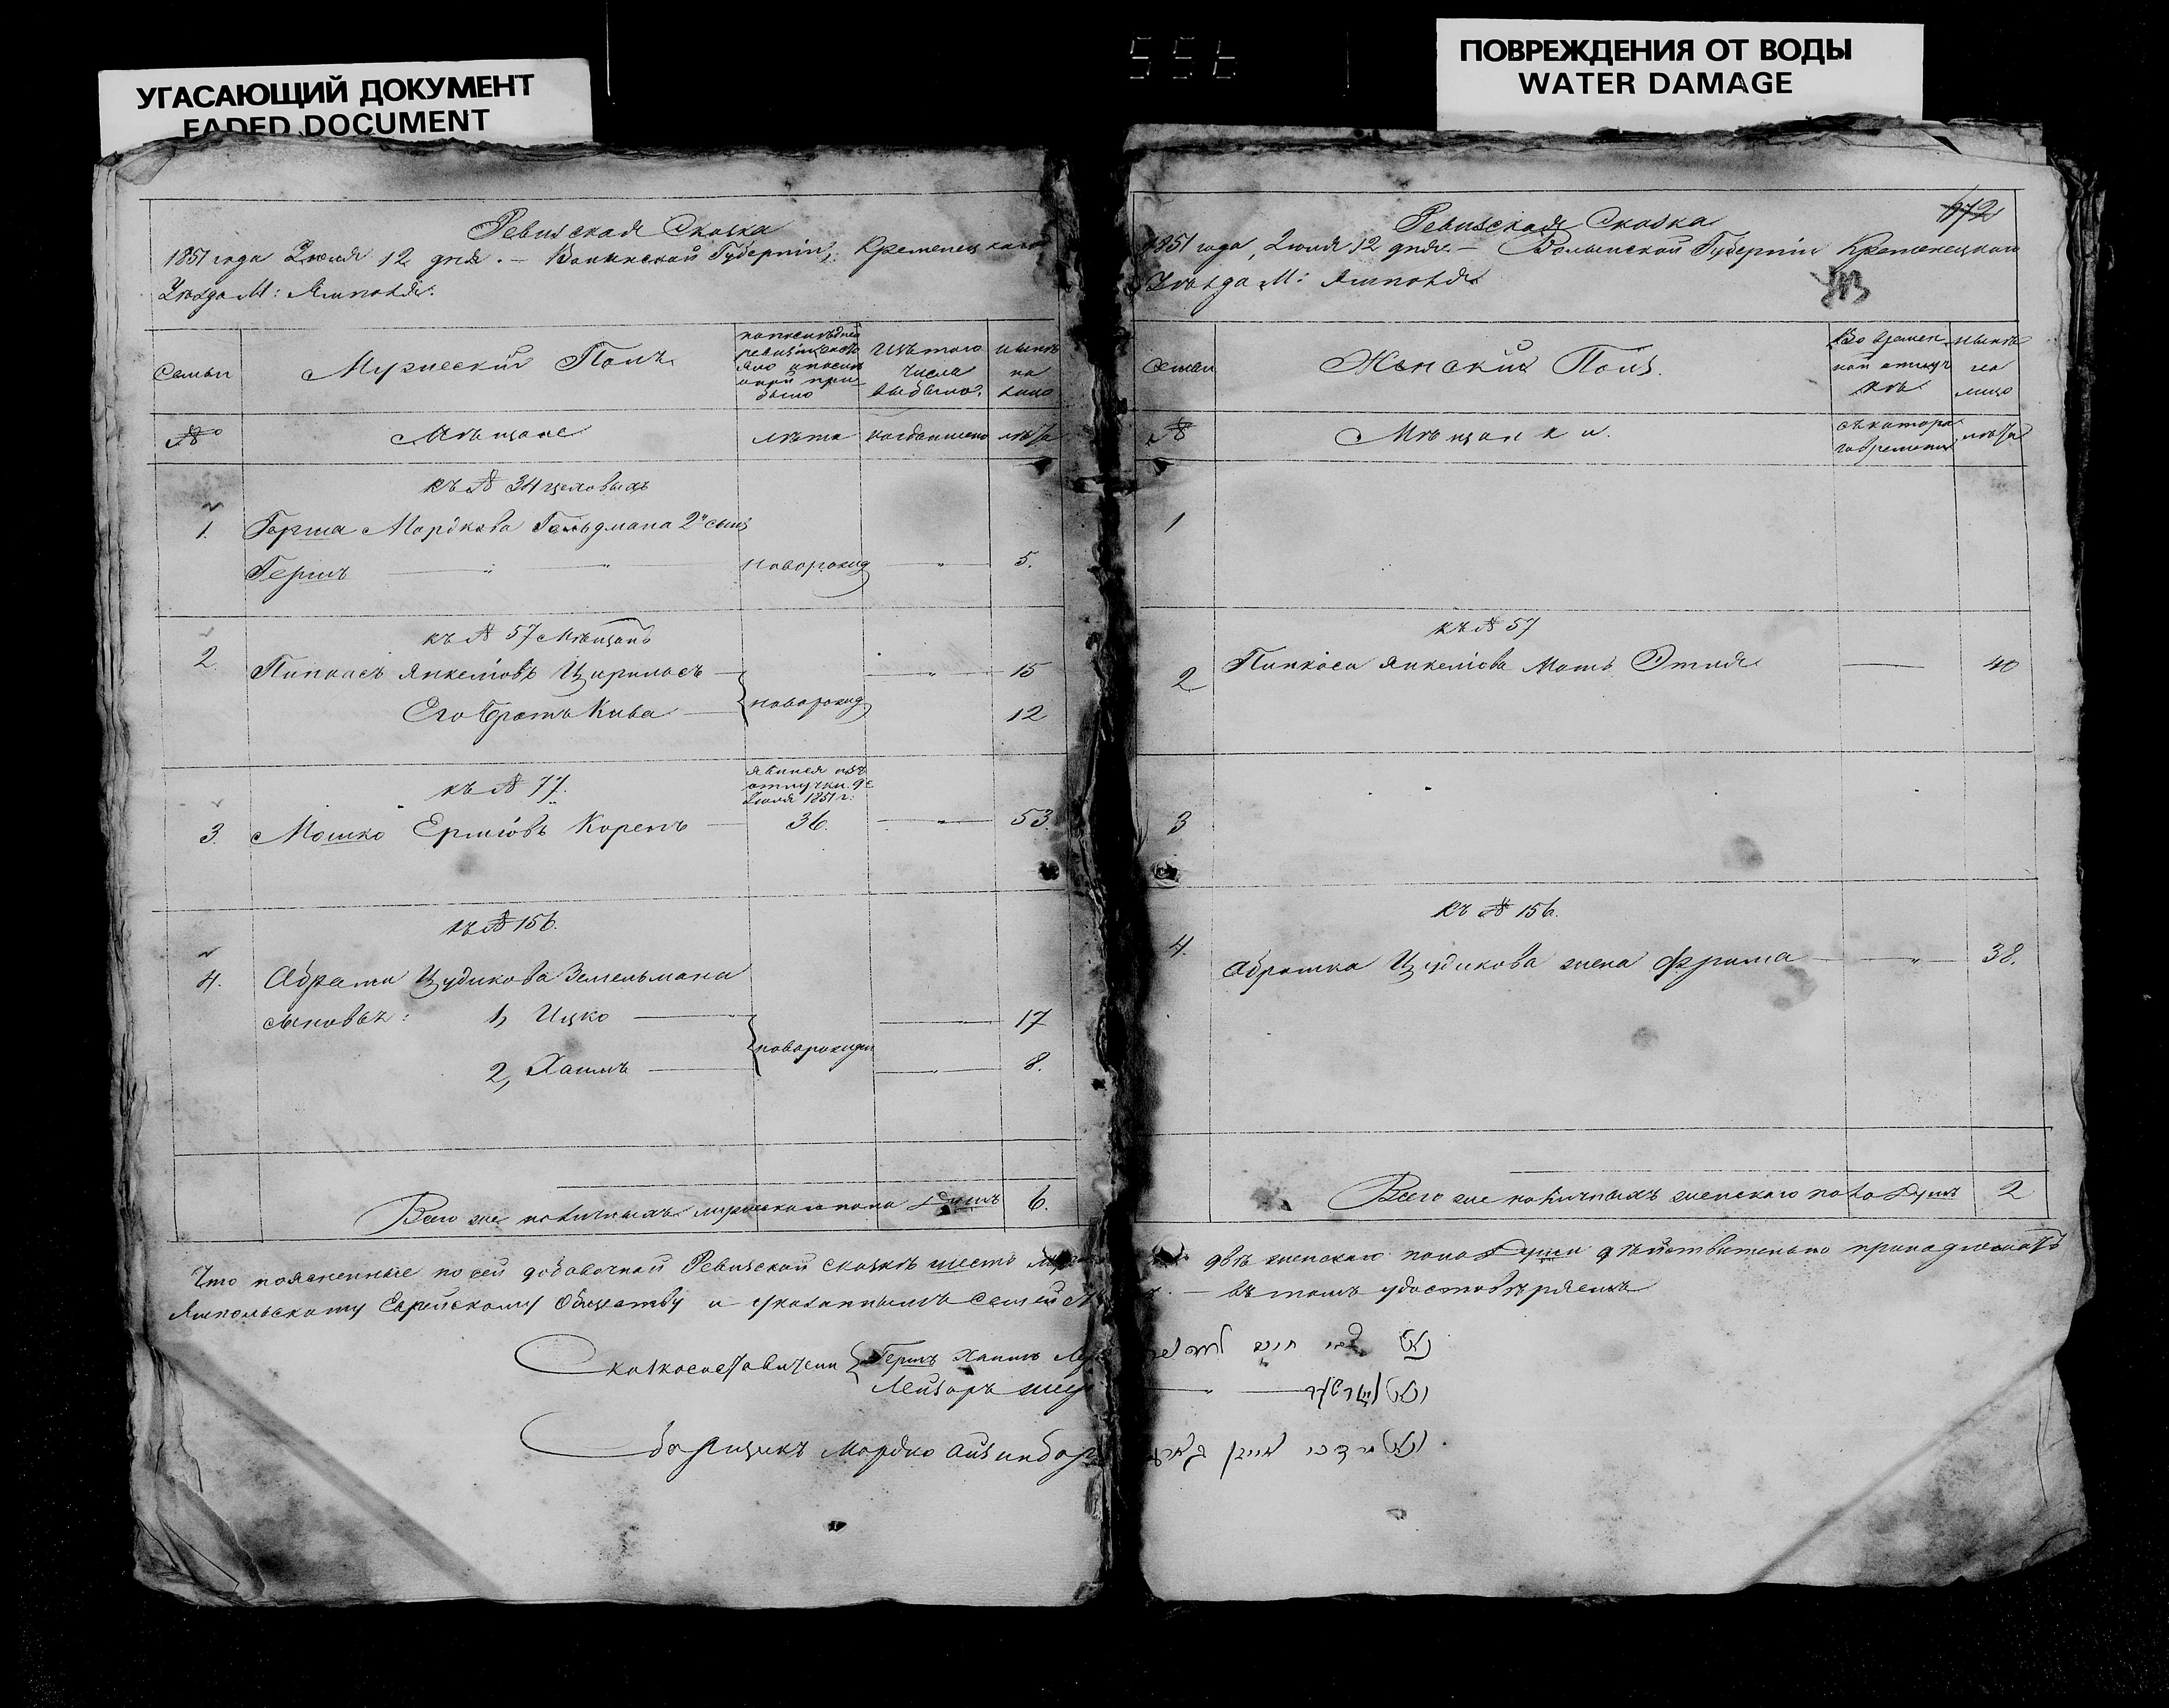 УГАСАЮЩИЙ ДОКУМЕНТ
FADED DOCUMENT
556
ПОВРЕЖДЕНИЯ ОТ ВОДЫ
WATER DAMAGE
Ревизская Сказка
1851 года Июля 12 дня. – Волынской Губерніи, Кременецкаго
Уѣзда М: Ямполя.
Семьи
Мужескій Полъ
по последней
ревизіи
было
Изъ того
числа
выбыло
нынѣ
на
лицо
№
Мѣщане
лѣта
когда именно
лѣта
къ № 34
1.
Герша Мордкова Гольдмана 2й сынъ
Гершъ
новорожд
5.
къ № 57 Мѣщанъ
2.
Пинкасъ Янкеліовъ
15
Его братъ Кива
новорожд
12
къ № 77.
явился изъ
отлучки 9е
Июля 1851 г:
3.
Мошко Ершіовъ Корепъ
36.
53.
къ № 156.
4.
Абрама Цудикова Зегельмана
сыновья:
1, Ицко
17
новорожден
2, Хаимъ
8.
Всего же наличныхъ мужескаго пола Душъ
6.
Ревизская Сказка
672
1851 года, Июля 12 дня – Волынской Губерніи Кременецкаго
Уѣзда М: Ямполя
Семьи
Женскій Полъ.
Во времен
ной отлуч
кѣ
нынѣ
на
лицо
№
Мѣщанки.
съ котора
го времени
лѣта
1
къ № 57
2
Пинкаса Янкеліова Мать Этля
40
3
къ № 156.
4.
Абрашка Цудикова жена Фрима
38.
Всего же наличныхъ женскаго пола Душъ
2
Что поясненные по сей добавочной Ревизской сказкѣ шесть
двѣ женскаго пола Души дѣйствительно принадлежатъ
Ямпольскому Еврейскому Обществу и указаннымъ семей
въ томъ удостовѣряемъ
Сказкосоставители
Гершъ Хаимъ
Лейзоръ
Сборщикъ Мордко Айзинбер